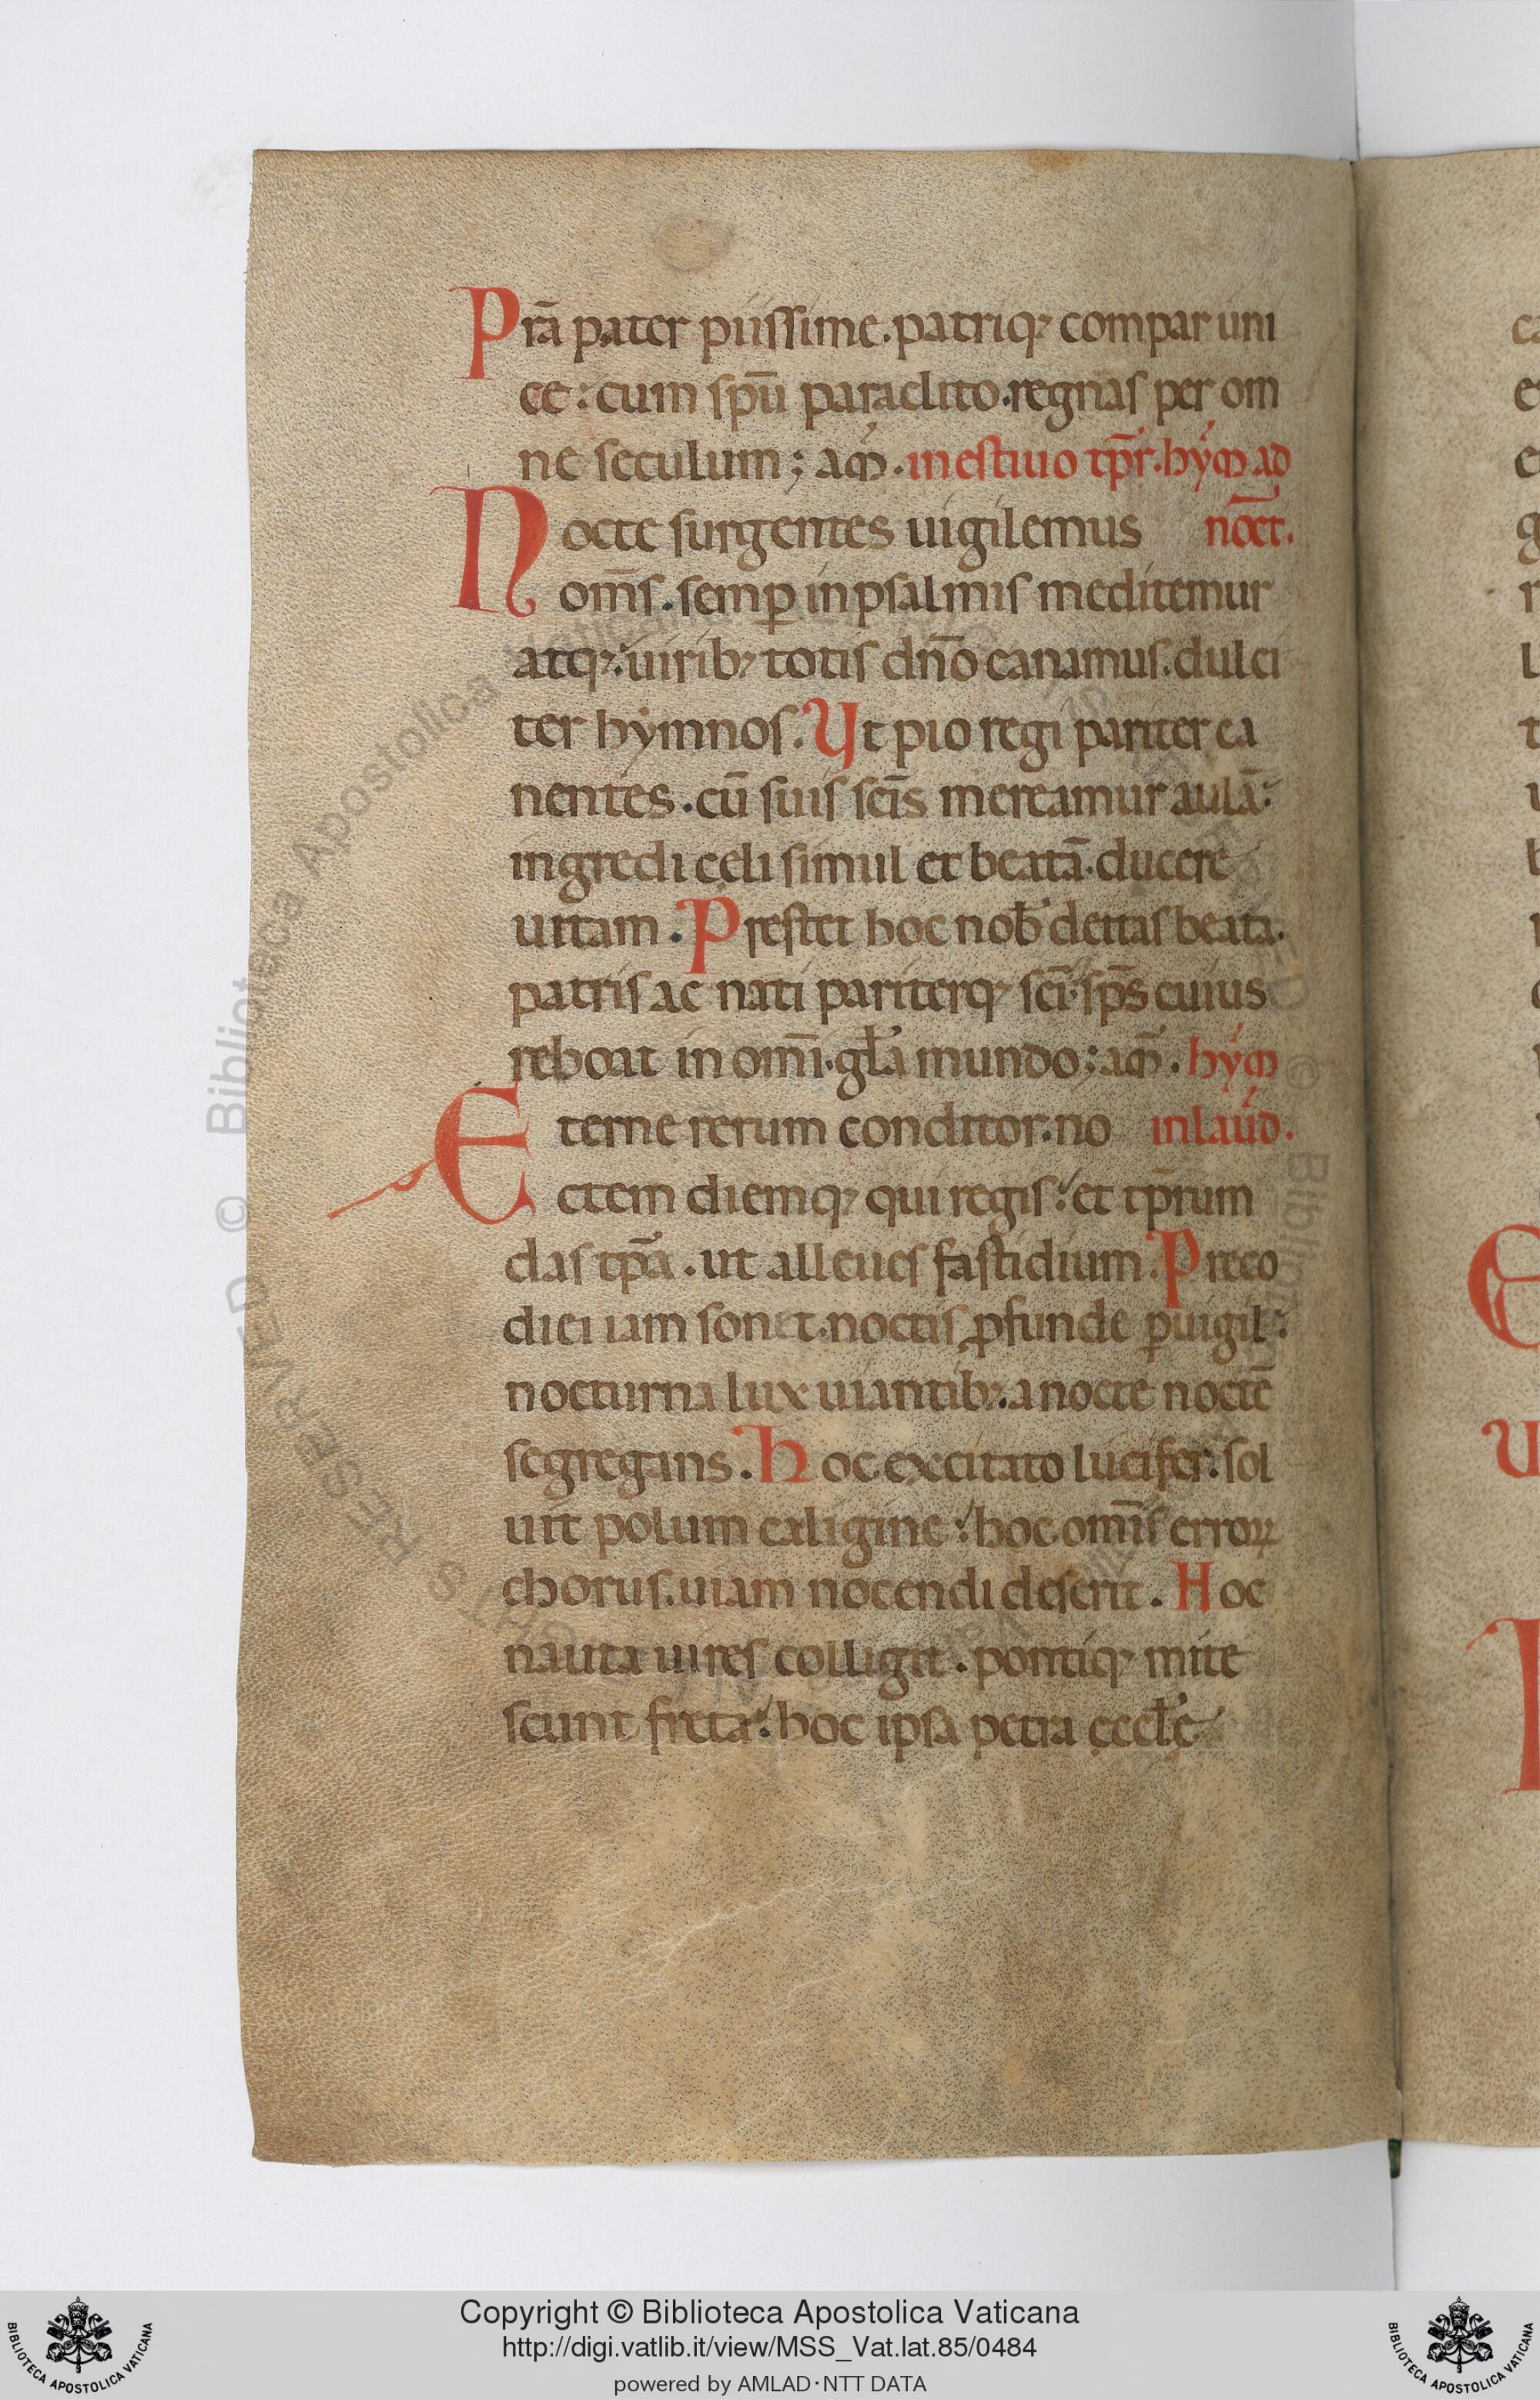 Prā pater piissime. patriq; compar uni
ce: cum spū paraclito. regnas per om
ne seculum; am̄. in estiuo tp̄r. hym̄ ad
Nocte surgentes uigilemus noct̄.
om̄s. semꝑ in psalmis meditemur
atq;: uirib; totis dn̄o canamus. dulci
ter hymnos. Ut pio regi pariter ca
nentes. cū suis sc̄is mereamur aulā:
ingredi celi simul et beatā. ducere
uitam. Prestet hoc nob̄ deitas beata.
patris ac nati pariterq; sc̄i sp̄s cuius
reboat in om̄i. gl̄a mundo; am̄. hym̄
Eterne rerum conditor. no in laud̄.
ctem diemq; qui regis: et tp̄rum
das tp̄a. ut alleues fastidium. Preco
diei iam sonet. noctis ꝓfunde ꝑuigil:
nocturna lux uiantib;. a nocte noctē
segregans. Hoc excitato lucifer. sol
uit polum caligine: hoc om̄is erroꝝ
chorus. uiam nocendi deserit. Hoc
nauta uires colligit. pontiq; mite
scunt freta: hoc ipsa petra eccl̄ę
© Biblioteca Apostolica Vaticana
Copyright © Biblioteca Apostolica Vaticana
http://digi.vatlib.it/view/MSS_Vat.lat.85/0484
powered by AMLAD·NTT DATA
BIBLIOTECA APOSTOLICA VATICANA
BIBLIOTECA APOSTOLICA VATICANA